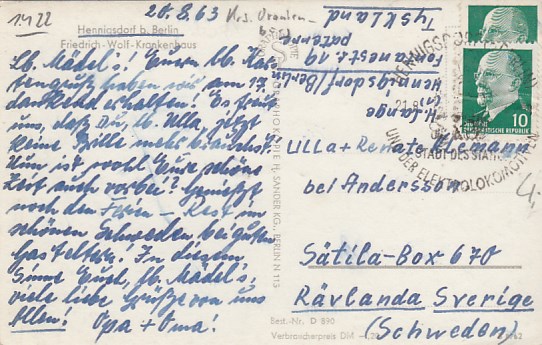 1422
20.8.63
Krs. Oranien-
Hennigsdorf b. Berlin
Friedrich-Wolf-Krankenhaus
Lb. Mädel's! Euren lb. Kar-
tengruß haben wir am 17.
dankend erhalten. Es freut
uns, daß Du, lb. Ulla, jetzt
keine Brille mehr brauchst.
Nun ist wohl Eure schöne
Zeit auch vorbei? Genießt
noch den Ferien-Rest im
schönen Schweden bei guten
Gasteltern. In diesem
Sinne Euch, lb. Mädel's,
viele liebe Grüße von uns
Allen! Opa + Oma!
H. SANDER KG., BERLIN N 113
Tyskland
Fontanestr. 19
Hennigsdorf/Berlin
H. Lange
HENNIGSDORF
21.8
STADT DES STAHLS
UND DER ELEKTROLOKOMOTIVEN
10
DEUTSCHE DEMOKRATISCHE REPUBLIK
Ulla + Renate Klemann
bei Andersson
4,-
Sätila-Box 670
Rävlanda Sverige
(Schweden)
Best.-Nr. D 890
Verbraucherpreis DM -,20